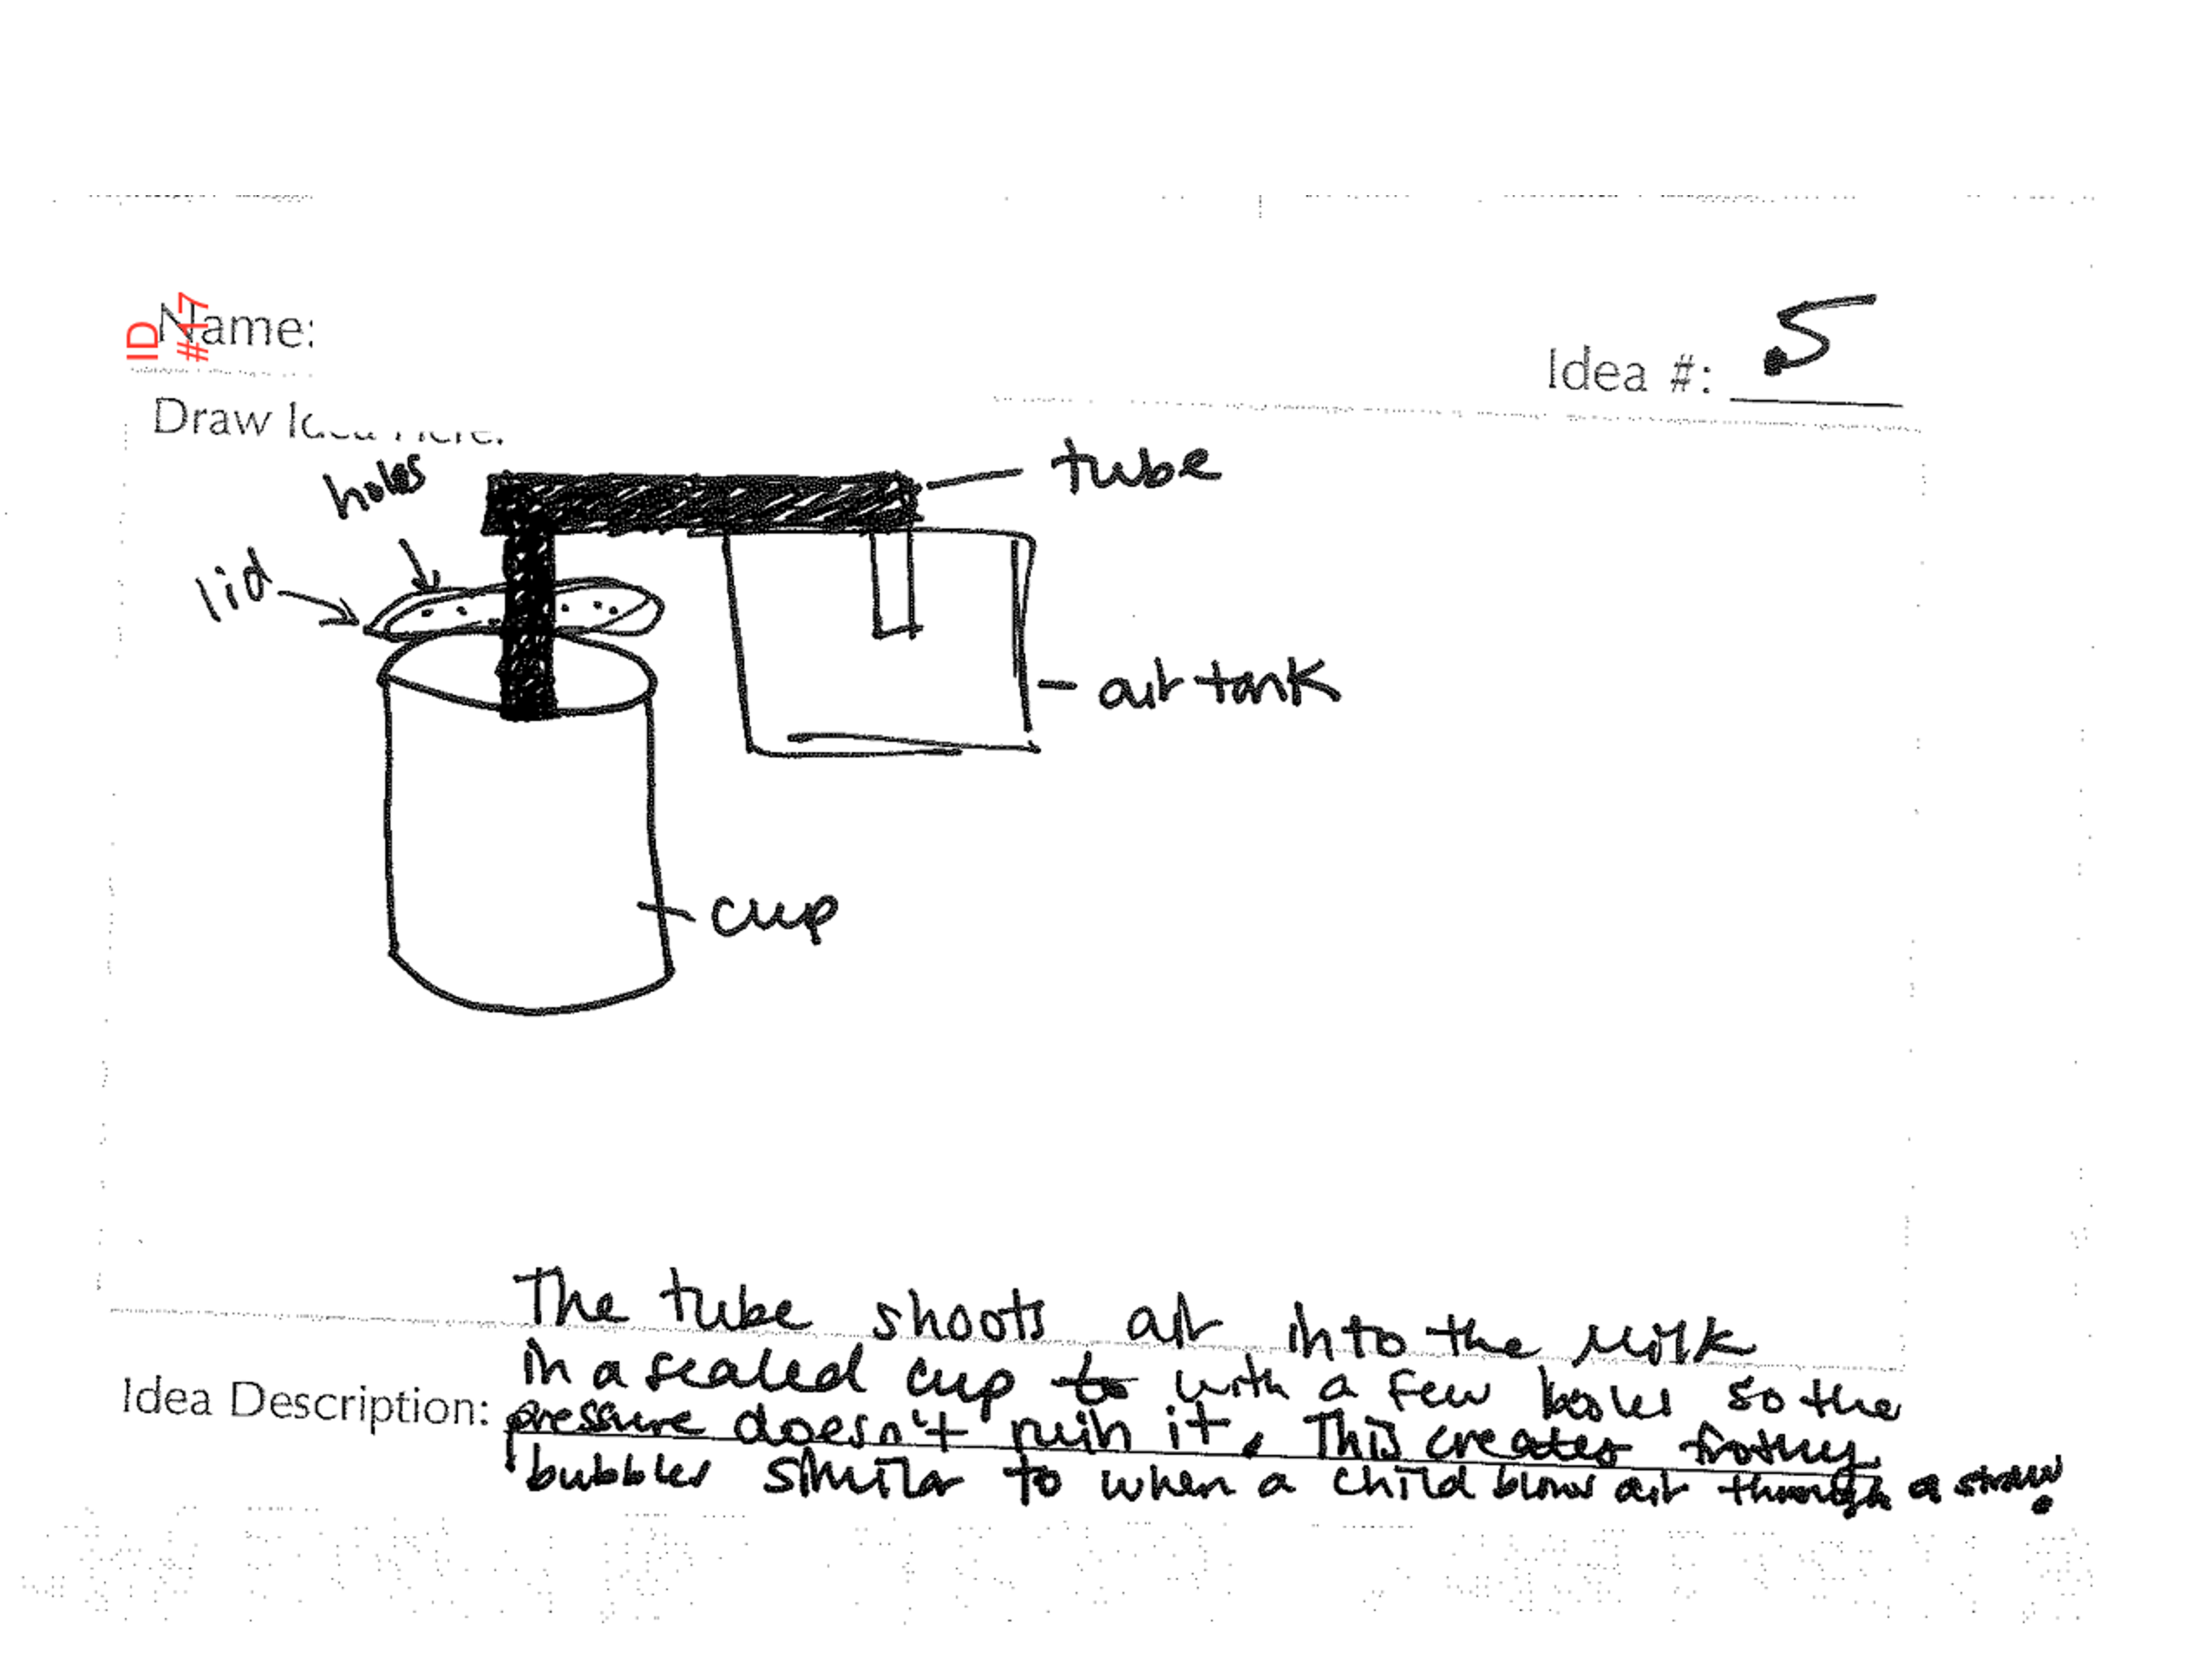 ID
#17
Name:
Idea #: 5
Draw Idea Here:
holes
tube
lid
air tank
cup
The tube shoots air into the milk
in a sealed cup to with a few holes so the
Idea Description:
pressure doesn't ruin it. This creates frothy
bubbles similar to when a child blows air through a straw.